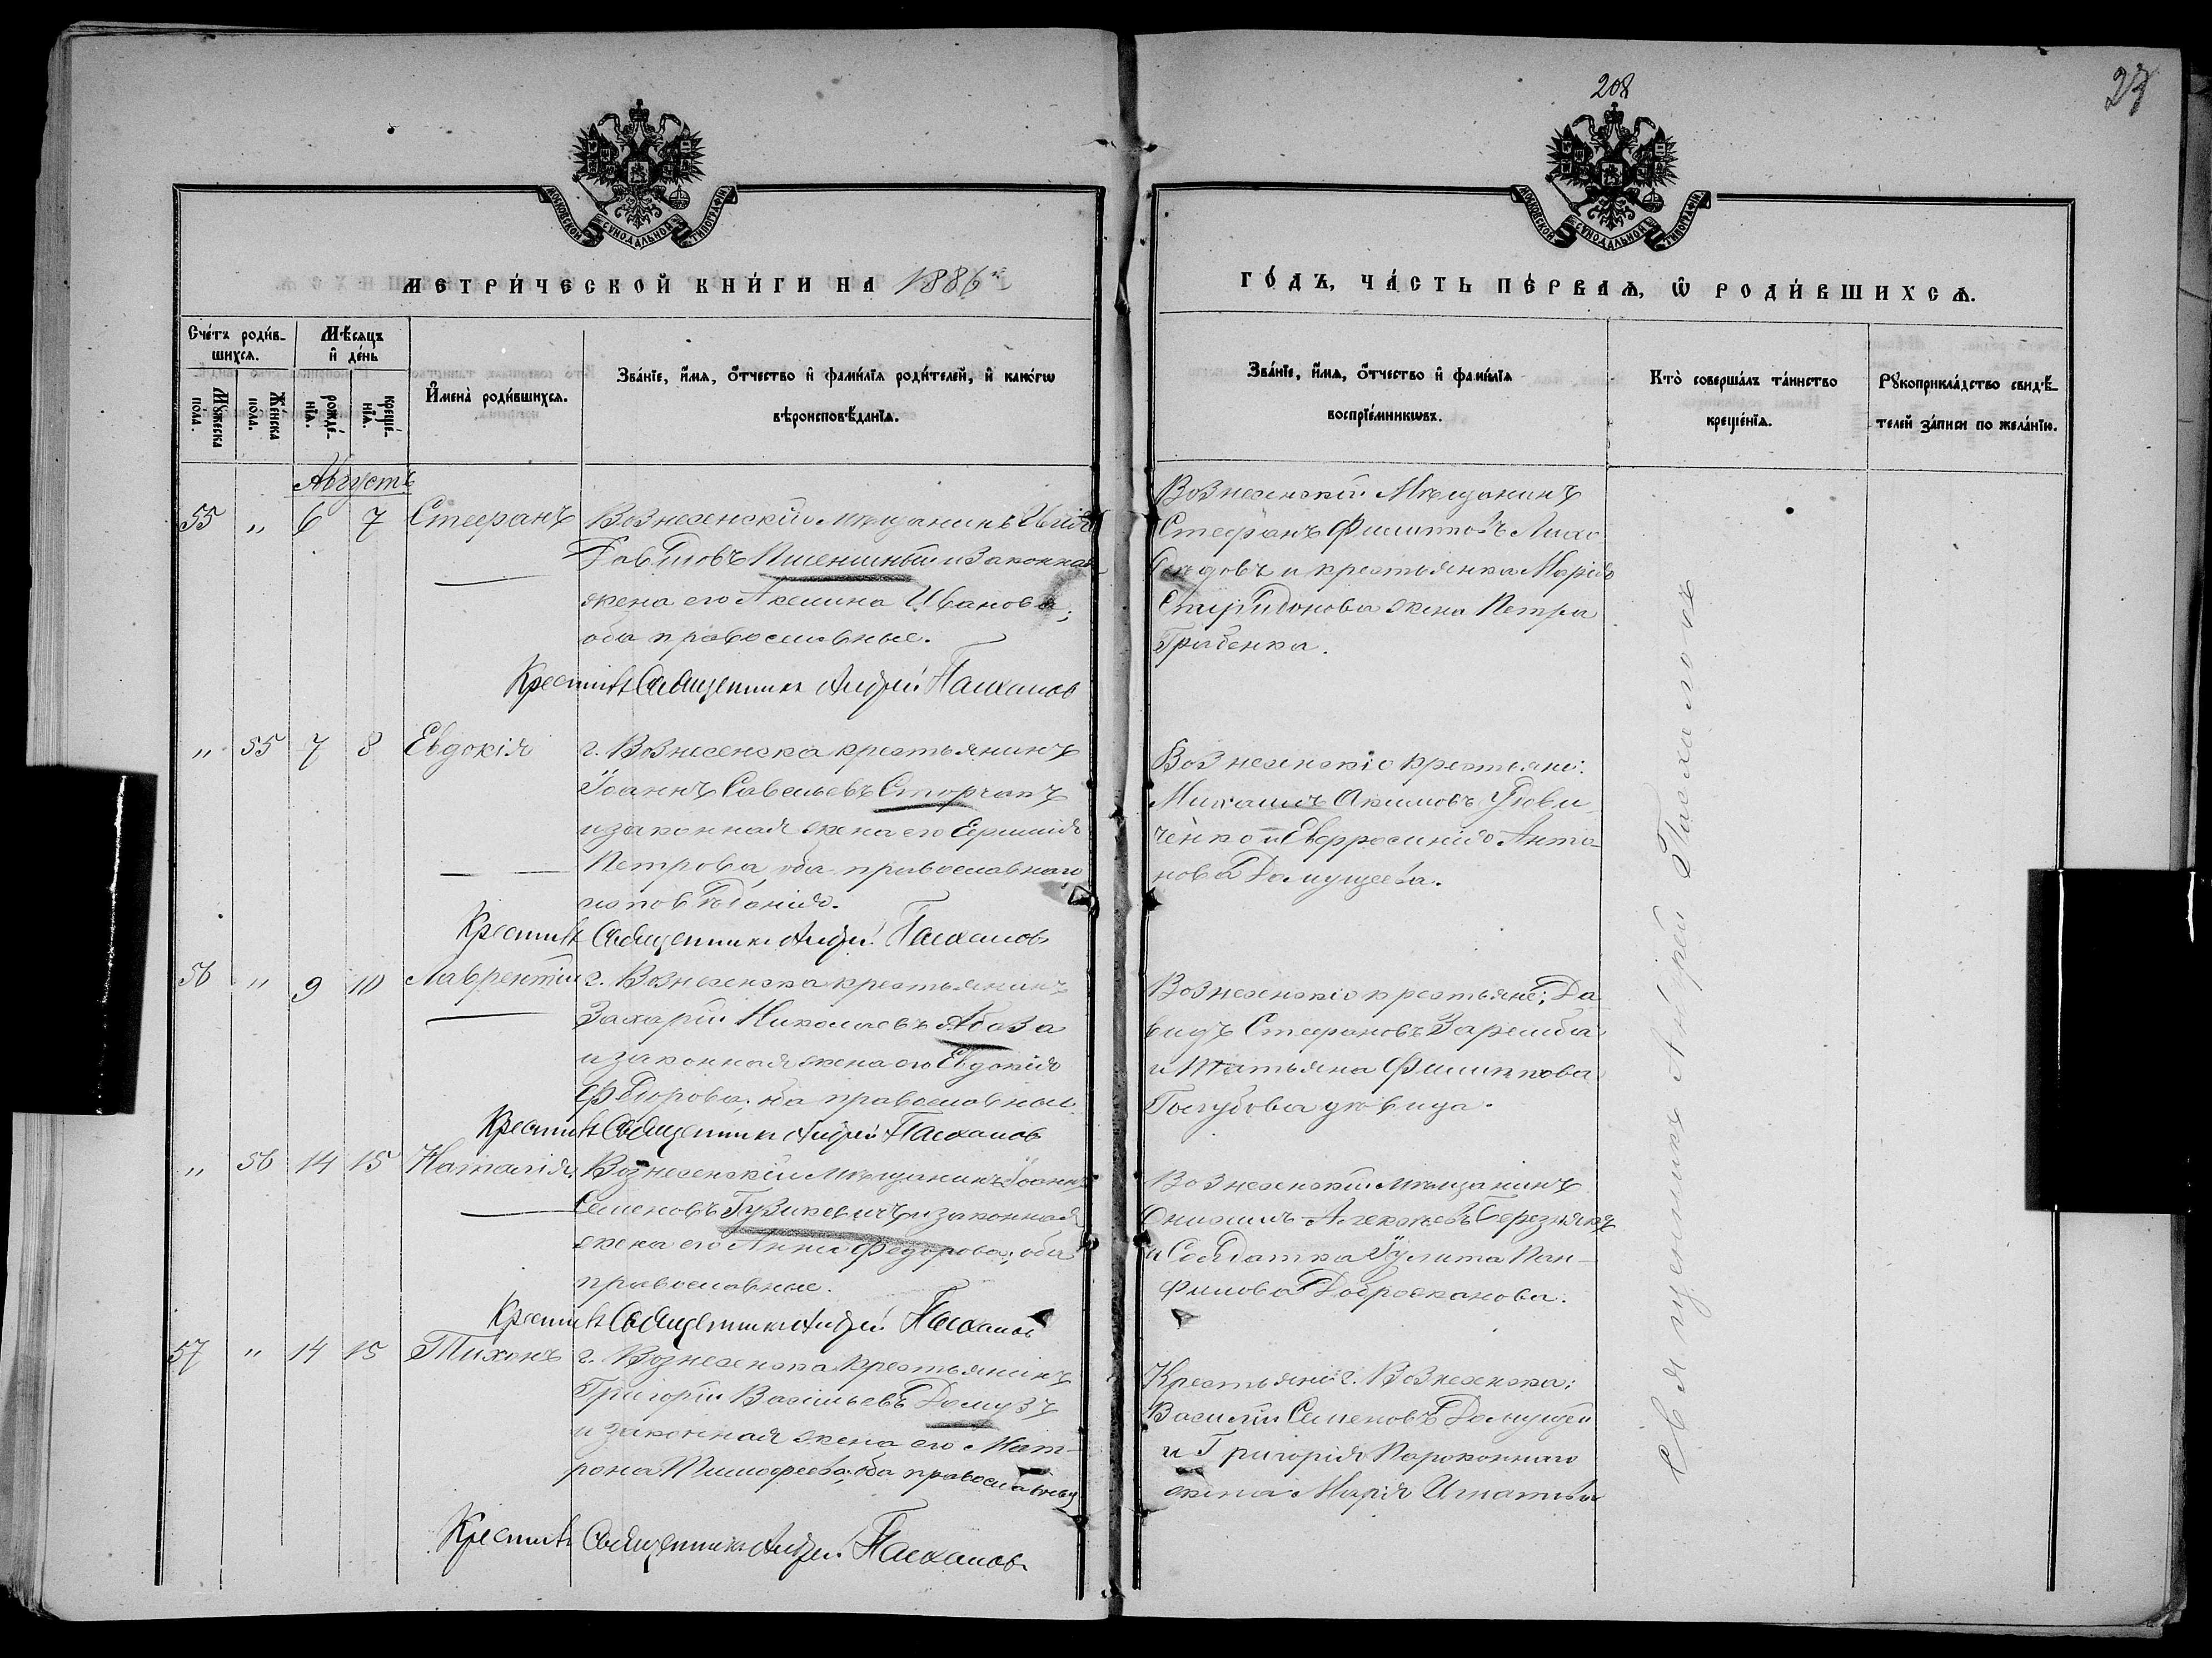 208
27
МОСКОВСКОЙ СУНОДАЛЬНОЙ ТИПОГРАФІИ
МОСКОВСКОЙ СУНОДАЛЬНОЙ ТИПОГРАФІИ
МЕТРИ́ЧЕСКОЙ КНИ́ГИ НА 1886
ГО́ДЪ, ЧА́СТЬ ПЕ́РВАѦ, Ѡ РОДИ́ВШИХСѦ.
Сче́тъ роди́в-
шихсѧ.
Мѣ́сѧцъ
и҆ де́нь
Мꙋ́жеска
по́ла.
Же́нска
по́ла.
рожде́-
нїѧ.
креще́-
нїѧ.
И҆мена̀ роди́вшихсѧ.
Зва́нїе, и҆́мѧ, ѻ҆́тчество и҆ фами́лїѧ роди́телей, и҆ како́гѡ
вѣроисповѣ́данїѧ.
Зва́нїе, и҆́мѧ, ѻ҆́тчество и҆ фами́лїѧ
воспрїе́мникѡвъ.
Кто̀ соверша́лъ та́инство
креще́нїѧ.
Рꙋкоприкла́дство свидѣ́-
телей за́писи по жела́нїю.
Августъ
55 " 6 7 Стефанъ Вознесенскій мѣщанинъ
Давидовъ Пшеничный и законная
жена его Акилина Иванова;
оба православные.
Крестилъ Священникъ Андрей Пасхалов
Вознесенскій Мѣщанинъ
Стефанъ Филиповъ
и крестьянка Марія
Спиридонова жена Петра
Грабенка.
" 55 7 8 Евдокія г. Вознесенска крестьянинъ
Іоаннъ Савельевъ Сторчакъ
и законная жена его
Петрова, оба православнаго
исповѣданія.
Крестилъ Священникъ Андрей Пасхалов
Вознесенскіе крестьяне:
Михаилъ Акимовъ Удови
ченко и Евфросинія Анто-
нова Домущеева.
56 " 9 10 Лаврентій г. Вознесенска крестьянинъ
Захарій Николаевъ Абаза
и законная жена его Евдокія
Федорова, оба православные
Крестилъ Священникъ Андрей Пасхалов
Вознесенскіе крестьяне: Да
видъ Стефановъ Заремба
и Татьяна Филиппова
Голубова дѣвица.
" 56 14 15 Наталія Вознесенскій мѣщанинъ Іоаннъ
Семеновъ Гузикевичъ и законная
жена его Анна Федорова; оба
православные.
Крестилъ Священникъ Андрей Пасхалов
Вознесенскій мѣщанинъ
Онисимъ Алексѣевъ Березнякъ
и Солдатка Іулита Пан-
филова Доброжанова.
57 " 14 15 Тихонъ г. Вознесенска крестьянинъ
Григорій Васильевъ Домузъ
и законная жена его Мат-
рона Тимофеева, оба православные
Крестилъ Священникъ Андрей Пасхалов
Крестьяне г. Вознесенска:
Василій Семеновъ Домущей
и Григорія Пароконнаго
жена Марія Игнатьева
Священникъ Андрей Пасхаловъ